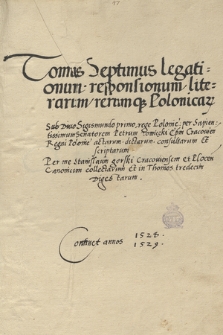 Tomus Septimus legati-
onum responsionum lite-
rarum rerumq3 Polonicar
Sub Divo Sigismundo primo, rege Polonię, per Sapien-
tissimum Senatorem Petrum Tomiczki Epm Cracovien
Regni Polonię actarum dictarum consultarum et
scriptarum
Per me Stanislaum gorski Cracoviensem et Plocen
Canonicum collectarum et in Thomos tredecim
digestarum
Continet annos 1528.
1529.